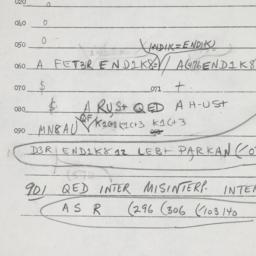 020 0
050 0
050 0
INDIK=ENDIK
060 A FET3R END1K82 // A(476 END1K8
070 $ 071 +
080 $ A RUS+ QED A H-US+
090 MNBAU QF K201K1C+3 K1C+3
D3R END1K8 12 LEB+ PARKAN (
901 QED INTER MISINTERP. INTE
A S R (296 (306 (103140